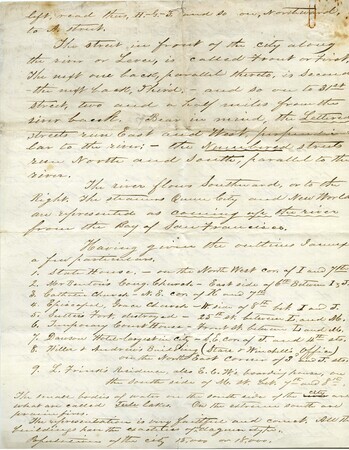 left, read thus, H-G-F and so on, Northward,
to A street.
The street in front of the city along
the river or Levee, is called Front or first,
The next one back, parallel thereto, is Second
- the next back, Third, - and so on to 31st
street, two and a half miles from the
river back. Bear in mind, the Lettered
streets run East and West, perpendicu-
lar to the river; - the Numbered streets
run North and South, parallel to the
river.
The river flows Southward, or to the
Right. The steamers Queen City and New World
are represented as coming up the river
from the Bay of San Francisco.
Having given the outlines I annex
a few particulars.
1. State House, - on the North West cor of I and 7th
2. Mr Benton's Cong. Church - East side of 6th Between I & J.
3. Catholic Church - N. E. cor of K and 7th
4. Episcopal, Grace Church - W side of 8th bet I and J.
5. Sutters Fort, destroyed - 25th st between L and M.
6. Temporary Court House - Front st between L and M.
7. Dawson Hotel, largest in city - cor of J and 4th sts.
8. Hiller & Andrews Building (State Marshall's Office)
on the North East Corner of J and 5th sts.
9. L. Frink's Residence, also E. C. W's boarding house, on
the South side of M. st. bet 7th and 8th.
The small bodies of water on the south side of the city are
what are called Tule Lakes. On the extreme south are
prairie fires.
The representation is very faithful and correct. All the
buildings have the exactitude of Daguerreotypes.
Population of the city 15,000 or 18,000.